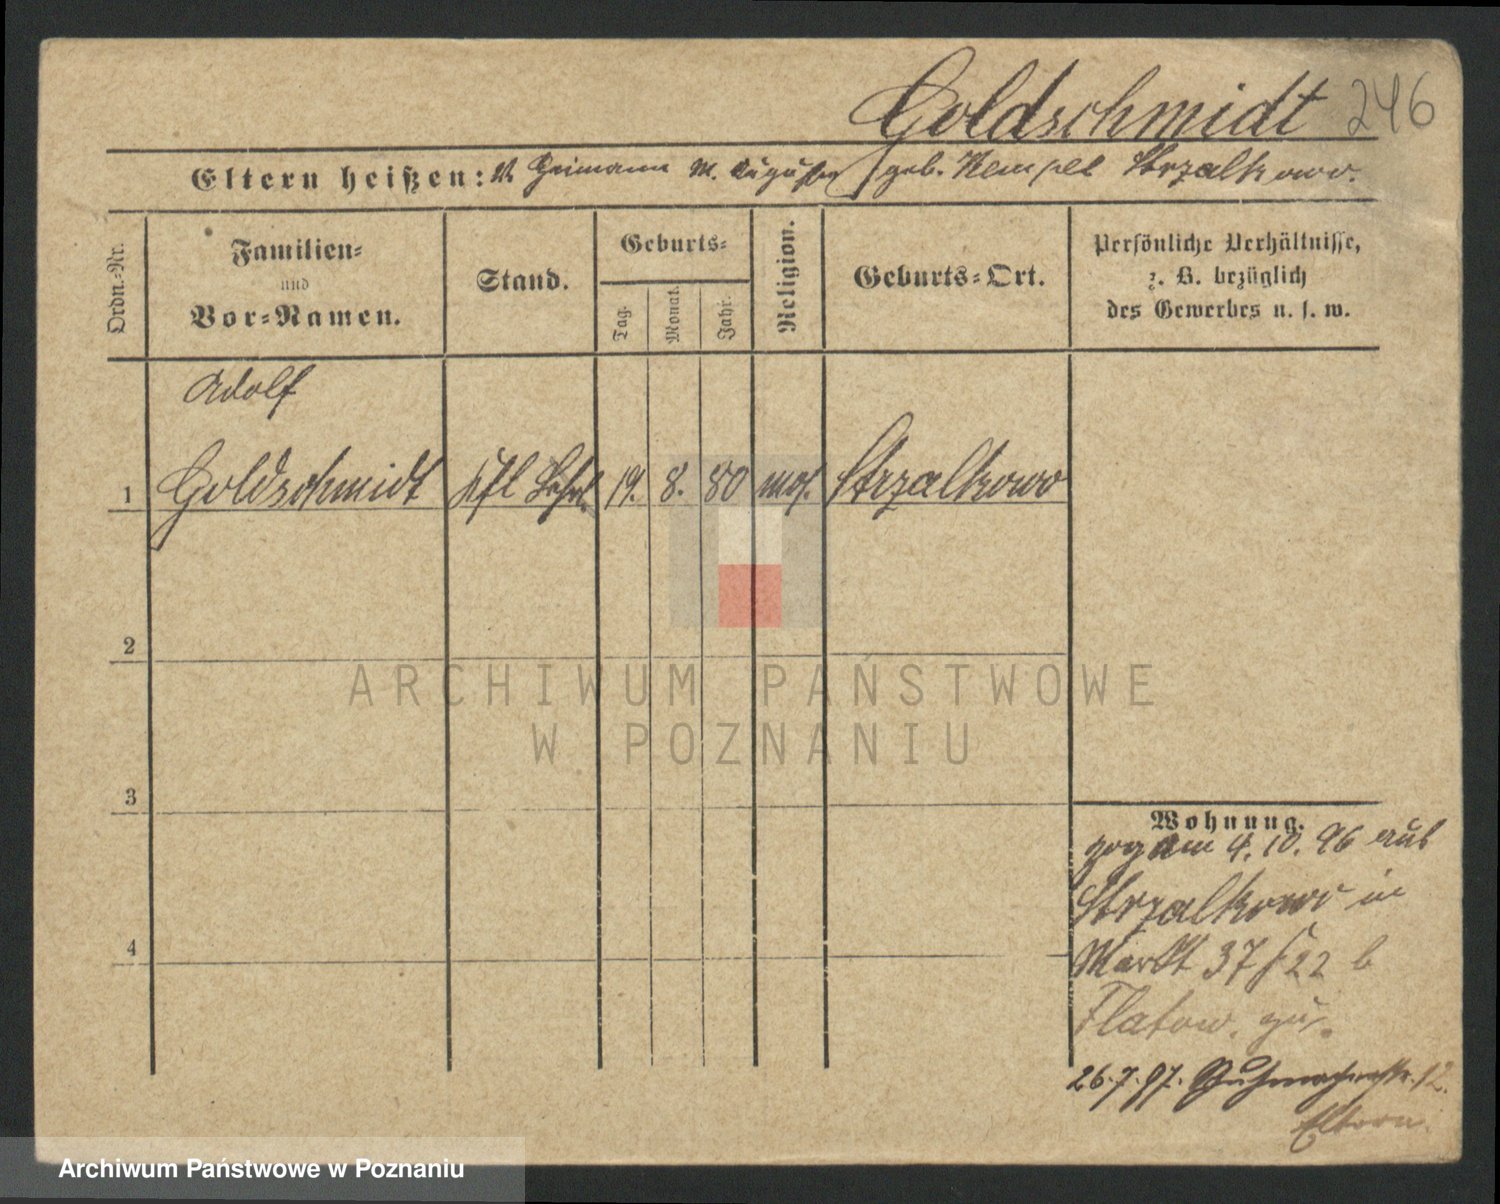 Goldschmidt 246
Eltern heißen: V. Heimann M. Auguste geb. Kempel Strzalkowo.
Ordn.-Nr.
Familien-
und
Vor-Namen.
Stand.
Geburts-
Tag.
Monat.
Jahr.
Religion.
Geburts-Ort.
Persönliche Verhältnisse,
z. B. bezüglich
des Gewerbes u. s. w.
Adolf
1 Goldschmidt Kfl Lehrl. 19. 8. 80 mos. Strzalkowo
2
ARCHIWUM PAŃSTWOWE
W POZNANIU
3
Wohnung.
zog am 4. 10. 96 aus
Strzalkowo in
Markt 37 22 b
Flatow.
26.7.97. Schuhmacherstr. 12.
Eltern.
4
Archiwum Państwowe w Poznaniu